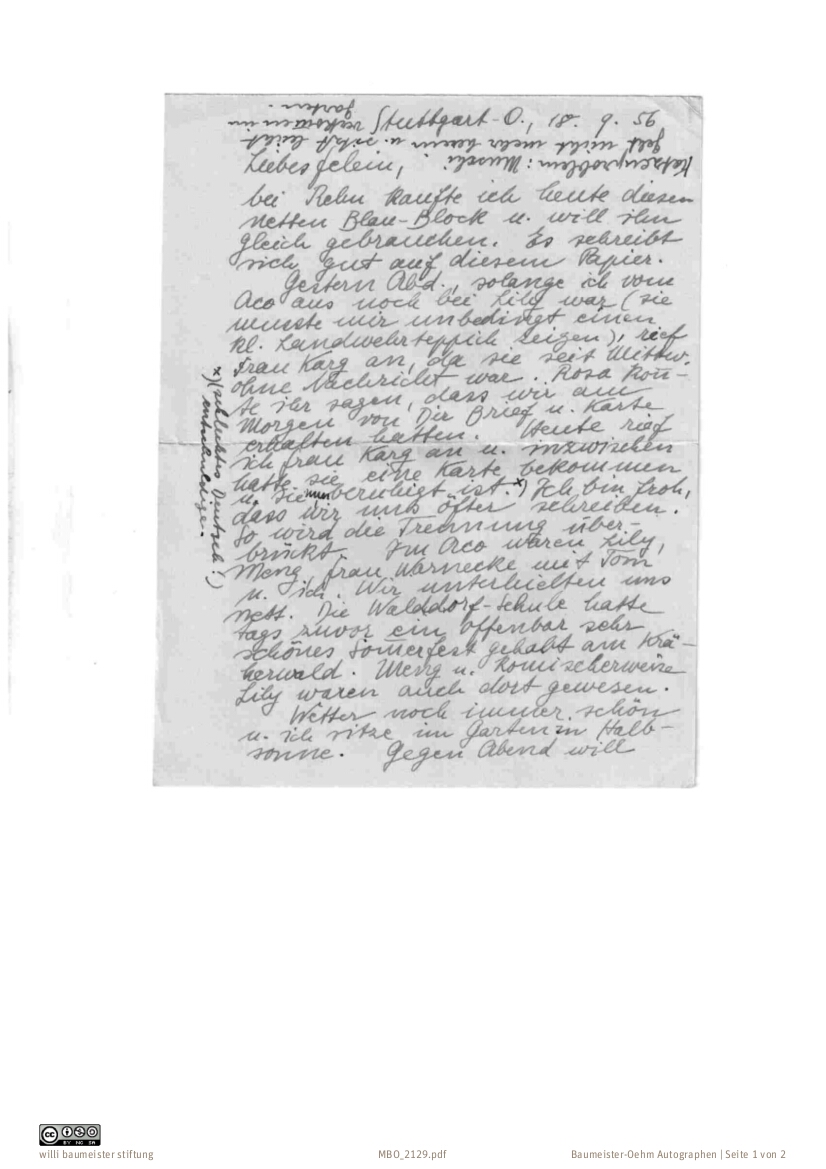 Stuttgart-O., 18. 9. 56
Liebes felein,
bei Rehn kaufte ich heute diesen
netten Blau-Block u. will ihn
gleich gebrauchen. Es schreibt
sich gut auf diesem Papier.
Gestern Abd., solange ich vom
Aco aus noch bei Lily war (sie
musste mir unbedingt einen
kl. Landwehrteppich zeigen), rief
Frau Karg an, da sie seit Mittw.
ohne Nachricht war. Rosa kon-
te ihr sagen, dass wir am
Morgen von Dir Brief u. Karte
erhalten hatten. Heute rief
ich Frau Karg an u. inzwischen
hatte sie eine Karte bekommen
u. sie nun beruhigt ist. x) Ich bin froh,
dass wir uns öfter schreiben.
So wird die Trennung über-
brückt. Im Aco waren Lily,
Meng, Frau Warnecke mit Tom
u. ich. Wir unterhielten uns
nett. Die Walddorf-Schule hatte
tags zuvor ein offenbar sehr
schönes Somerfest gehabt am Krä-
herwald. Meng u. komischerweise
Lily waren auch dort gewesen.
Wetter noch immer schön
u. ich sitze im Garten in Halb-
sonne. Gegen Abend will
x) (schlechtes Deutsch!)
entschuldige.
Katzenproblem: Muschi
geht nicht mehr herein u. sitzt leicht
verkommen im
Garten.
willi baumeister stiftung
MBO_2129.pdf
Baumeister-Oehm Autographen | Seite 1 von 2
CC BY NC SA